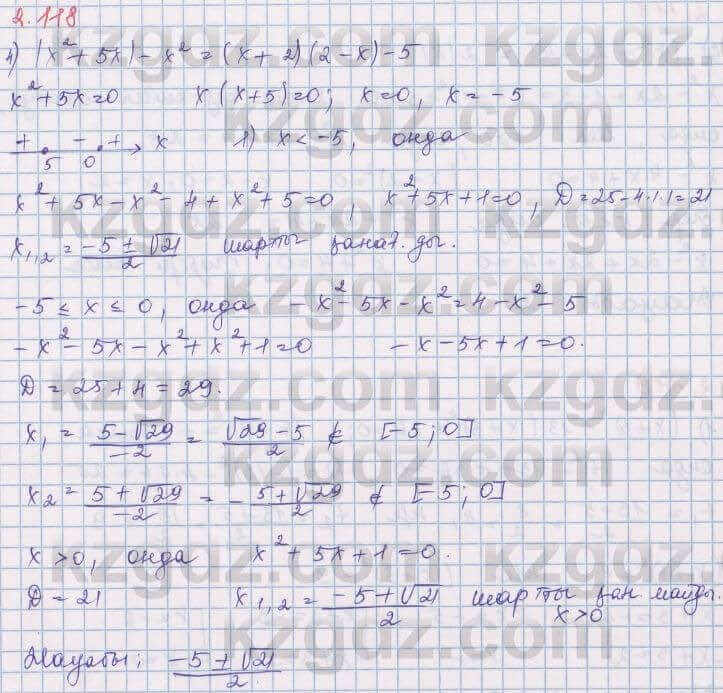 2.118
1) |x² + 5x| - x² = (x + 2)(2 - x) - 5
x² + 5x = 0 x(x+5)=0; x=0, x = -5
+ - + x 1) x < -5, онда
5 0
x² + 5x - x² - 4 + x² + 5 = 0, x² + 5x + 1 = 0, D = 25 - 4·1·1 = 21
x₁,₂ = (-5 ± √21)/2 шарты қанағ. ды.
-5 ≤ x ≤ 0, онда - x² - 5x - x² = 4 - x² - 5
-x² - 5x - x² + x² + 1 = 0 - x - 5x + 1 = 0.
D = 25 + 4 = 29.
x₁ = (5 - √29)/-2 = (√29 - 5)/2 ∉ [-5; 0]
x₂ = (5 + √29)/-2 = - (5 + √29)/2 ∉ [-5; 0]
x > 0, онда x² + 5x + 1 = 0.
D = 21 x₁,₂ = (-5 ± √21)/2 шарты қан. майды.
x > 0
Жауабы; (-5 ± √21)/2
kzgdz.com